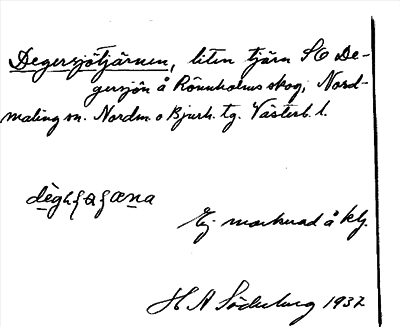 Degersjötjärnen, liten tjärn SO De-
gersjön å Rönnholms skog, Nord-
maling sn. Nordm. o Bjurh. tg. Västerb. l.
Ej markerad å kbl.
H A Söderberg 1937